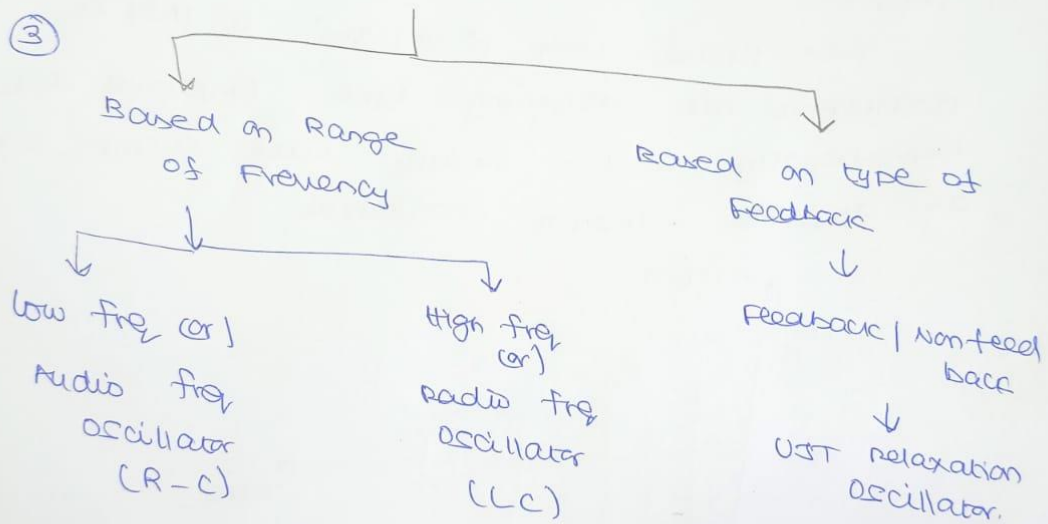 3
Based on Range
of Frevency
Low freq (or)
Audio freq
oscillator
(R-C)
High freq
(or)
Radio freq
oscillator
(LC)
Based on type of
Feedback
Feedback / Nonfeed
back
UJT relaxation
oscillator.